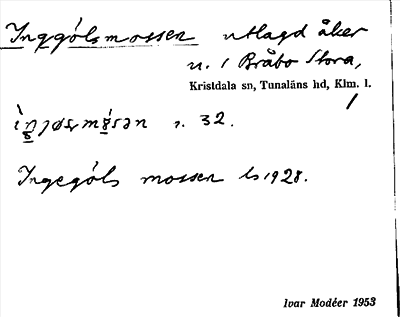 Inggólsmossen utlagd åker
u. / Bråbo Stora,
Kristdala sn, Tunaläns hd, Klm. l.
s. 32.
Ingególs mossen ls 1928.
Ivar Modéer 1953